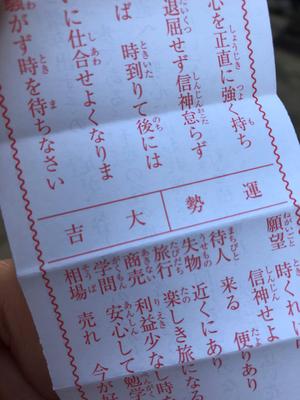 心を正直に強く持ち
退屈せず信神怠らず
ば 時到りて後には
いに仕合せよくなりま
騒がず時を待ちなさい
運勢
大吉
願望 時くれば
信神せよ
待人 来る 便りあり
失物 近くにあり
旅行 楽しき旅になる
商売 利益少なし時
学問 安心して勉学
相場 売れ 今が